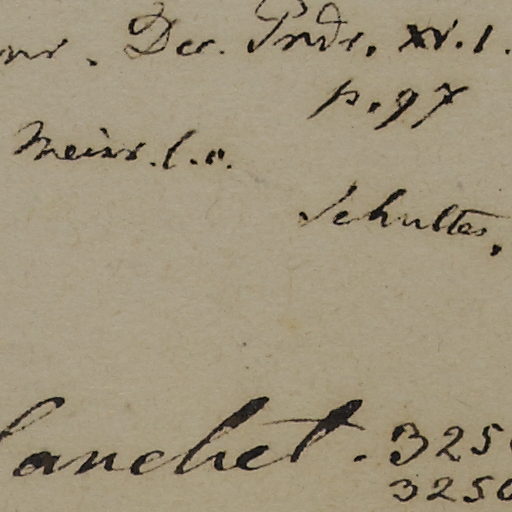 Dec. Prdr. xv. 1.
p. 97
Meisn. l. c.
Schultes,
lanchet. 325
3250